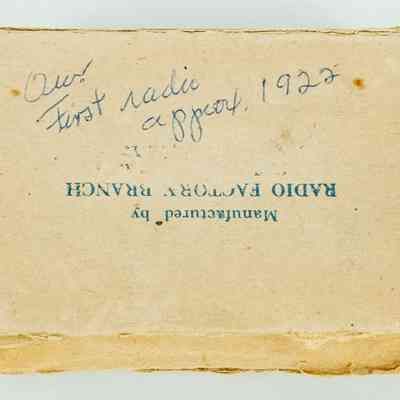 Our
First radio
appox. 1922
Manufactured by
RADIO FACTORY BRANCH